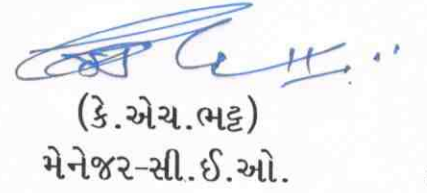 (કે.એચ.ભટ્ટ)
મેનેજર-સી.ઈ.ઓ.